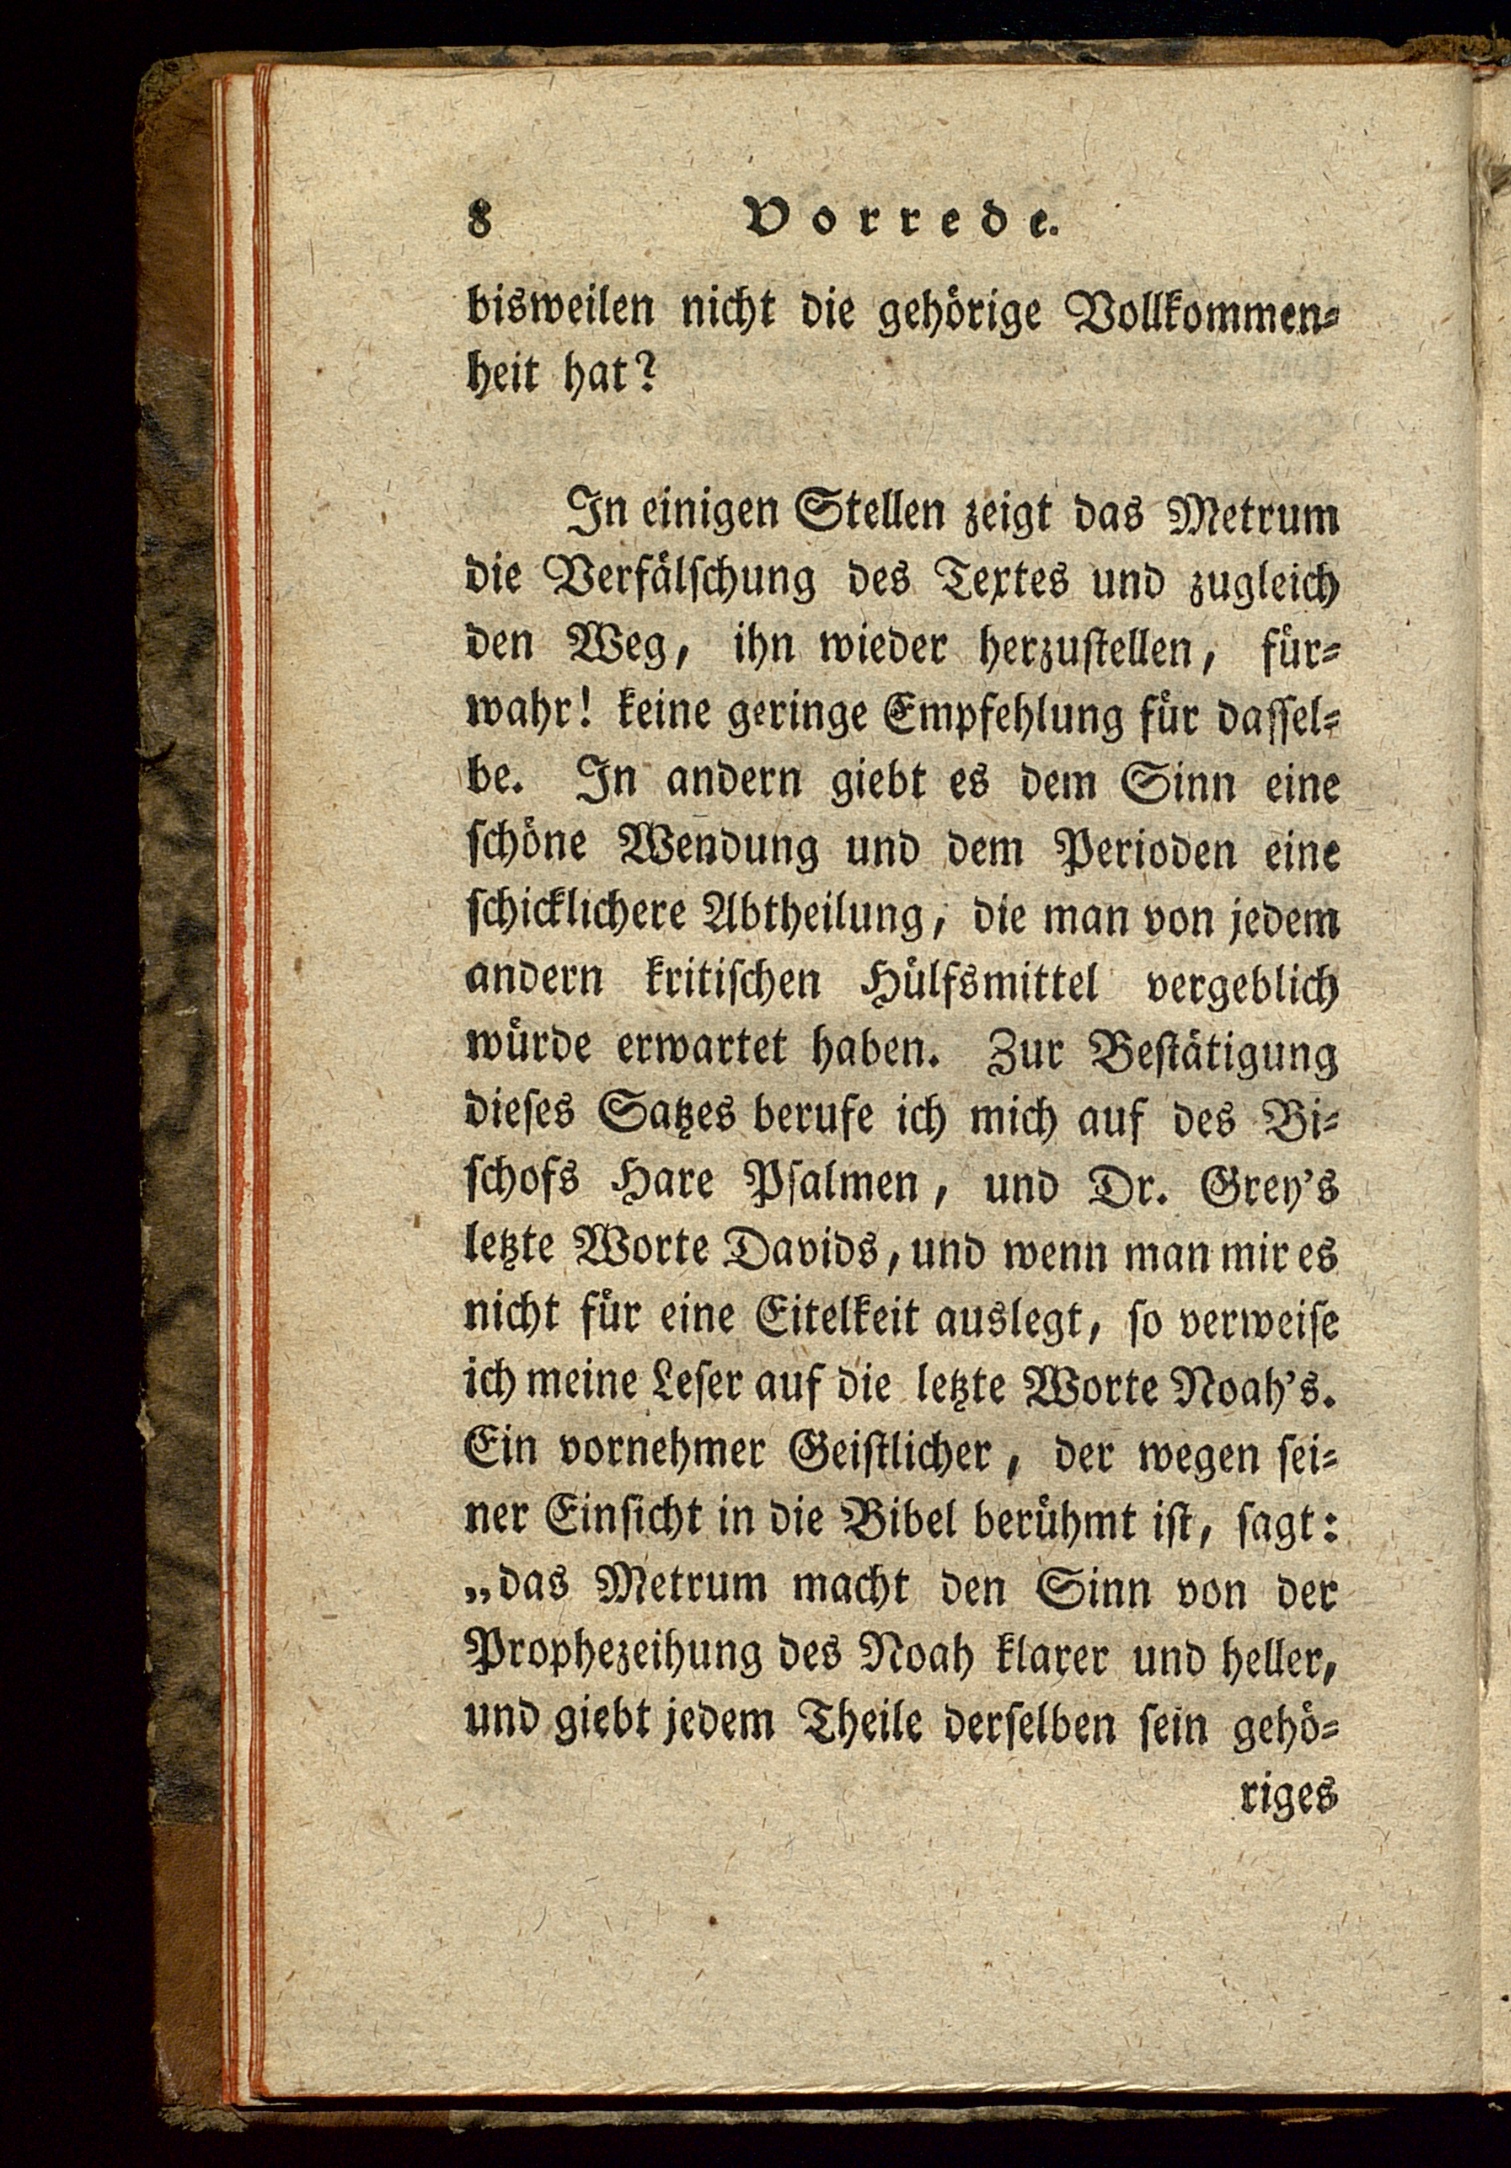 8 Vorrede.
bisweilen nicht die gehörige Vollkommen⸗
heit hat?
In einigen Stellen zeigt das Metrum
die Verfälſchung des Textes und zugleich
den Weg, ihn wieder herzuſtellen, für⸗
wahr! keine geringe Empfehlung für daſſel⸗
be. In andern giebt es dem Sinn eine
ſchöne Wendung und dem Perioden eine
ſchicklichere Abtheilung, die man von jedem
andern kritiſchen Hülfsmittel vergeblich
würde erwartet haben. Zur Beſtätigung
dieſes Satzes berufe ich mich auf des Bi⸗
ſchofs Hare Pſalmen, und Dr. Grey's
letzte Worte Davids, und wenn man mir es
nicht für eine Eitelkeit auslegt, ſo verweiſe
ich meine Leſer auf die letzte Worte Noah's.
Ein vornehmer Geiſtlicher, der wegen ſei⸗
ner Einſicht in die Bibel berühmt iſt, ſagt:
„das Metrum macht den Sinn von der
Prophezeihung des Noah klarer und heller,
und giebt jedem Theile derſelben ſein gehö⸗
riges